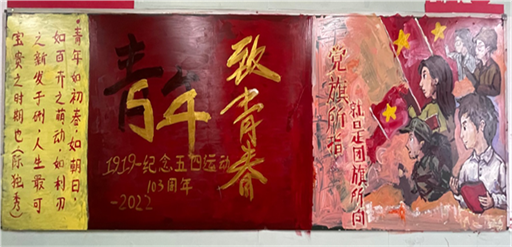 青年如初春，如朝日，
如百卉之萌动，如利刃
之新发于硎，人生最可
宝贵之时期也（陈独秀）
青年
致青春
1919-纪念五四运动
103周年
-2022
党旗所指
就是团旗所向